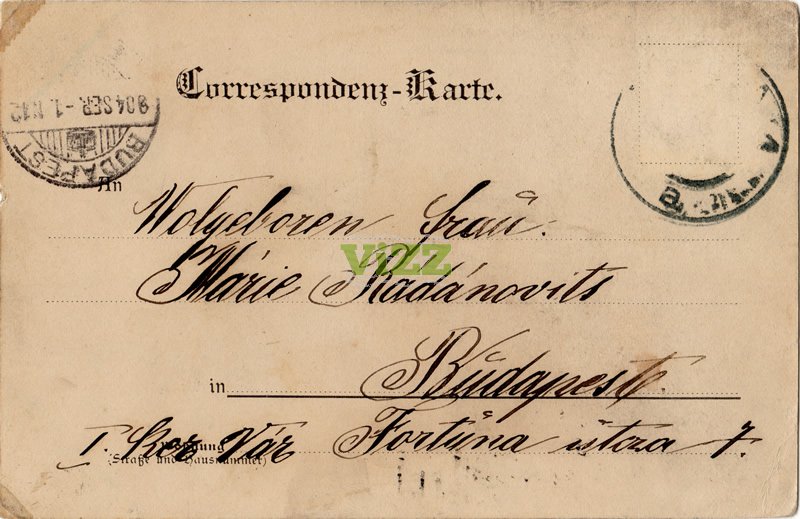 Correspondenz-Karte.
904 SEP. -1.
BUDAPEST
An
Wolgeboren Frau:
Márie Radánovits
ViZZ
in Budapest.
I. Ker Vár Fortúna utcza 7.
(Straße und Hausnummer)